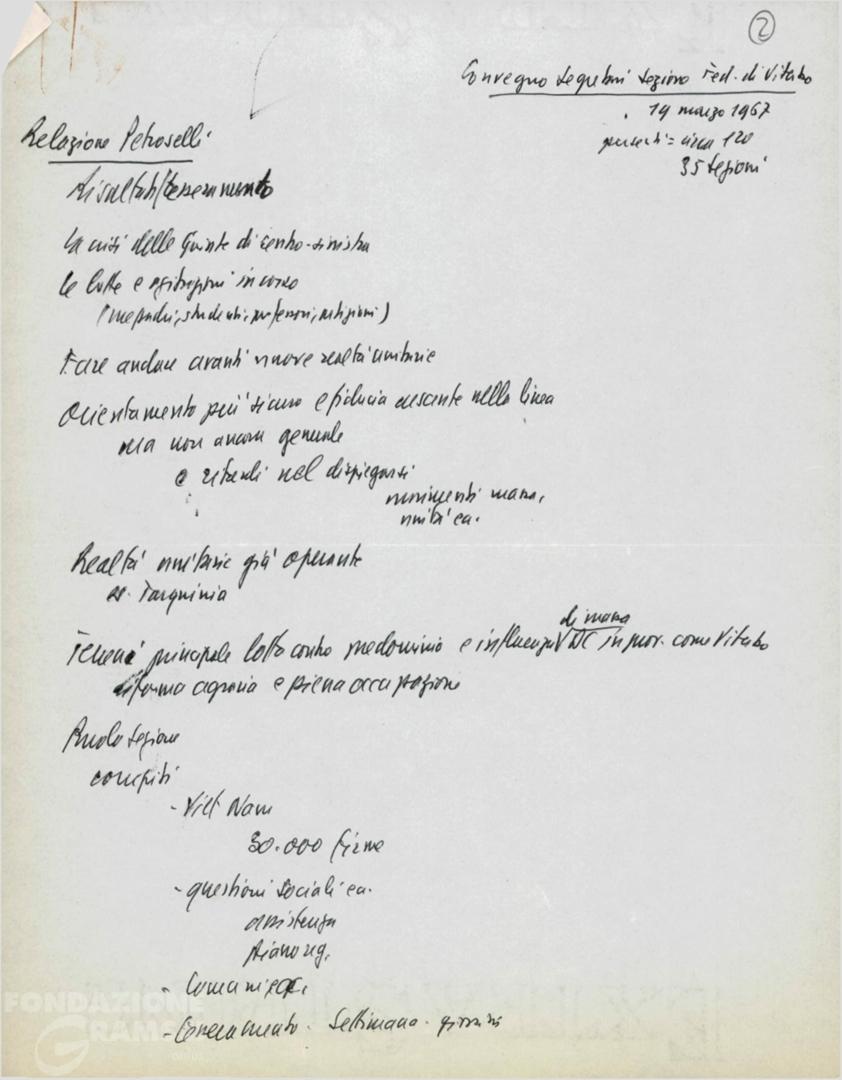 2
Convegno Segretari Sezione Fed. di Viterbo
19 marzo 1967
presenti = circa 120
35 Sezioni
Relazione Petroselli
Risultati tesseramento
La crisi delle Giunte di centro-sinistra
Le lotte e agitazioni in corso
(mezzadri, studenti, professori, artigiani)
Fare andare avanti nuove realtà unitarie
Orientamento più sicuro e fiducia crescente nella linea
ma non ancora generale
e ritardi nel dispiegarsi
movimenti massa,
unità ecc.
Realtà unitarie già operante
es. Tarquinia
di massa
principale lotta contro predominio e influenza DC in prov. come Viterbo
riforma agraria e piena occupazione
Ruolo Sezione
compiti
- Viet Nam
30.000 firme
- questioni sociali ec.
assistenza
Piano reg.
-
- Tesseramento - Settimana -
FONDAZIONE
GRAMSCI